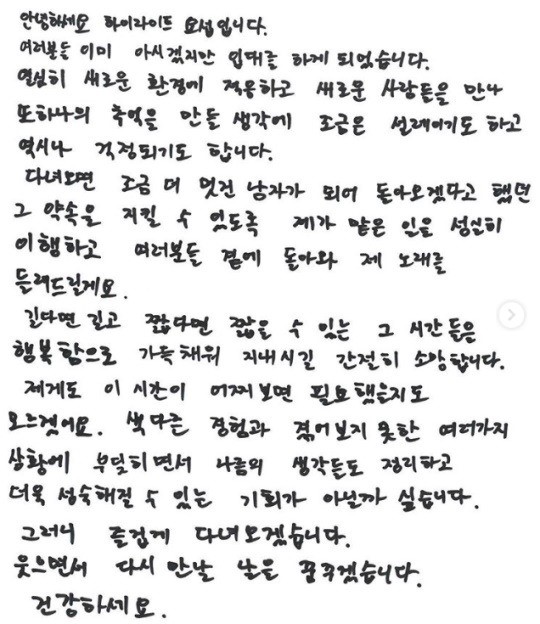 안녕하세요 하이라이트 요섭입니다.
여러분들 이미 아시겠지만 입대를 하게 되었습니다.
열심히 새로운 환경에 적응하고 새로운 사람들을 만나
또하나의 추억을 만들 생각에 조금은 설레이기도 하고
역시나 걱정되기도 합니다.
다녀오면 조금 더 멋진 남자가 되어 돌아오겠다고 했던
그 약속을 지킬 수 있도록 제가 맡은 일을 성실히
이행하고 여러분들 곁에 돌아와 제 노래를
들려드릴게요.
길다면 길고 짧다면 짧을 수 있는 그 시간들은
행복함으로 가득채워 지내시길 간절히 소망합니다.
제게도 이 시간이 어쩌보면 필요했을지도
모르겠어요. 색다른 경험과 겪어보지 못한 여러가지
상황에 부딪히면서 나름의 생각들도 정리하고
더욱 성숙해질 수 있는 기회가 아닐까 싶습니다.
그러니 즐겁게 다녀오겠습니다.
웃으면서 다시 만날 날을 꿈꾸겠습니다.
건강하세요.